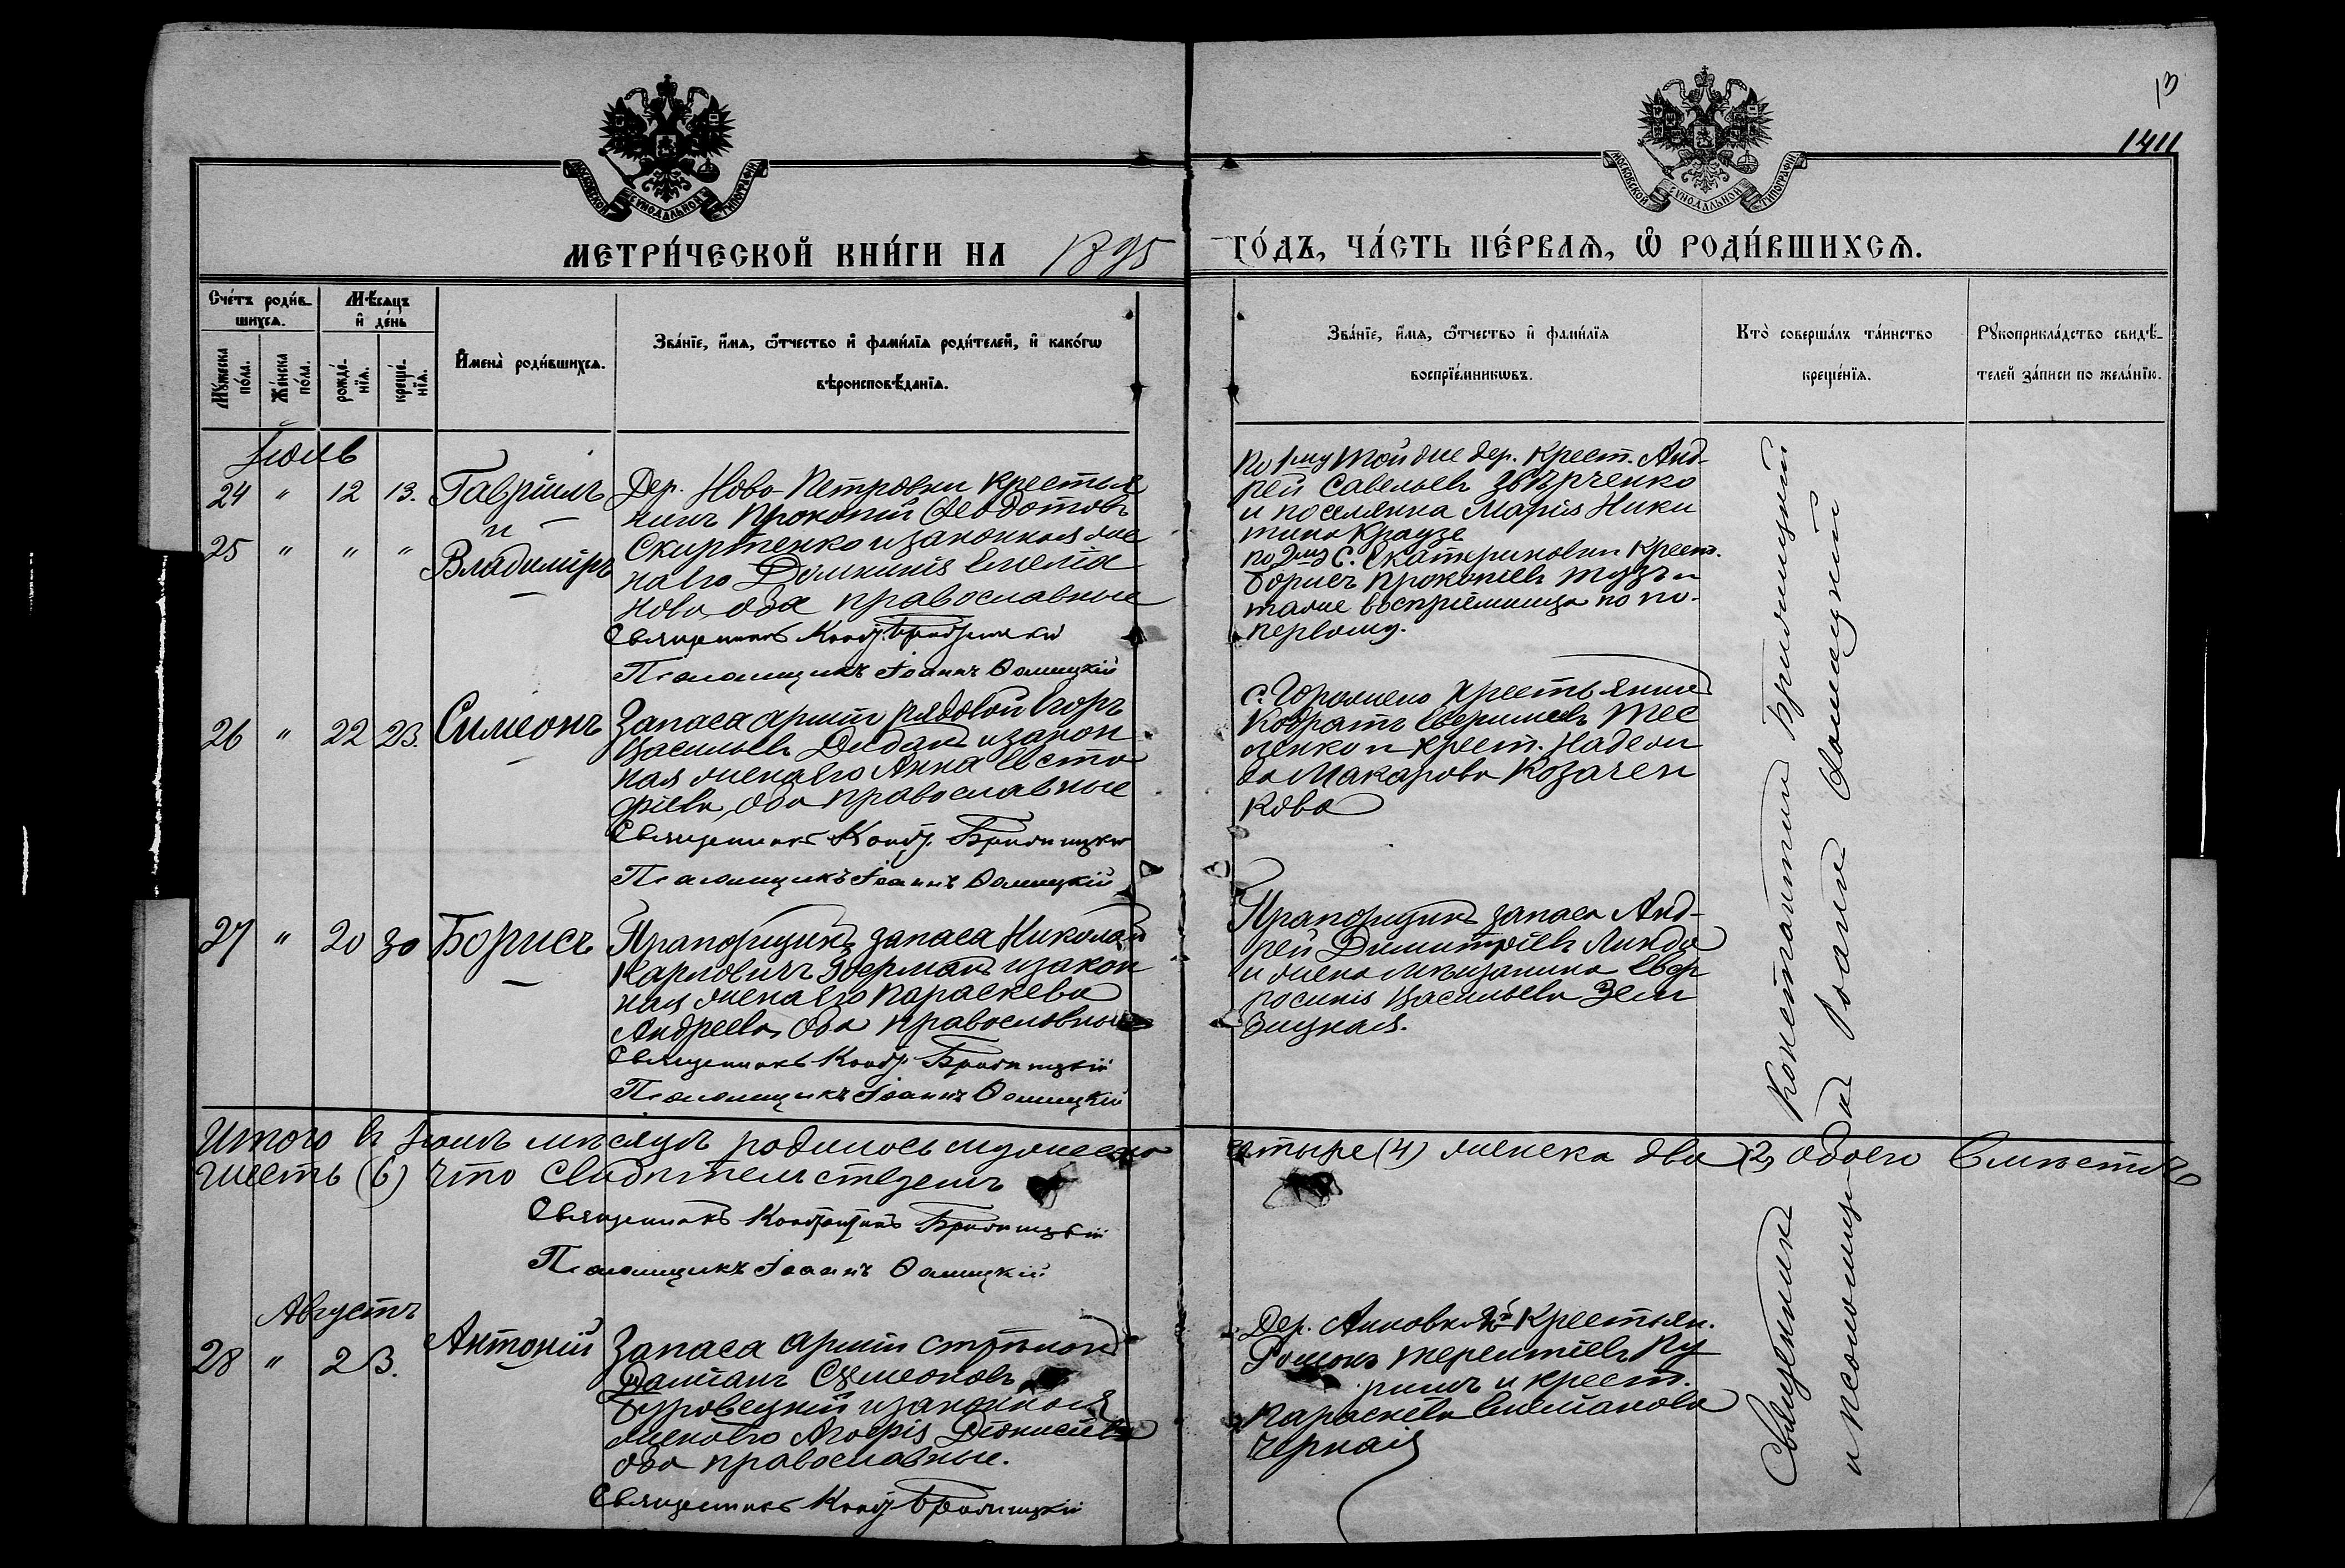 13
1411
МОСКОВСКОЙ СѴНОДАЛЬНОЙ ТИПОГРАФІИ
МОСКОВСКОЙ СѴНОДАЛЬНОЙ ТИПОГРАФІИ
МЕТРИ́ЧЕСКОЙ КНИ́ГИ НА 1895
ГО́ДЪ, ЧА́СТЬ ПЕ́РВАѦ, Ѡ РОДИ́ВШИХСѦ.
Счетъ роди́в-
шихсѧ.
Мѣ́сѧцъ
и҆ де́нь
Мꙋ́жеска по́ла.
Же́нска по́ла.
рожде́-
нїѧ.
креще́-
нїѧ.
И҆мена̀ роди́вшихсѧ.
Зва́нїе, и҆́мѧ, ѻ҆́тчество и҆ фами́лїѧ роди́телей, и҆ како́гѡ
вѣроисповѣ́данїѧ.
Зва́нїе, и҆́мѧ, ѻ҆́тчество и҆ фами́лїѧ
воспрїе́мникѡвъ.
Кто̀ соверша́лъ та́инство
креще́нїѧ.
Рꙋкоприкла́дство свидѣ́-
телей за́писи по жела́нїю.
Іюль
24 " 12 13. Гавріилъ
и
25 " " " Владиміръ
Дер. Ново-Петровки крестья
нинъ Прокопій Ѳеодотовъ
Скиртенко и законная же
на его Домникія Емелія
нова, оба православные
Священникъ Конст. Брилицкій
Псаломщикъ Іоаннъ Ѳомицкій
По 1му той же дер. Крест. Анд-
рей Савельевъ Звѣрченко
и поселянка Марія Ники
тина Краузе
по 2му С. Екатериновки Крест.
Борисъ Прокопіевъ Тузъ и
таже воспріемница по по-
первому.
26 " 22 23. Симеонъ
Запаса арміи рядовой Егоръ
Васильевъ Дидакъ и закон
ная жена его Анна Евста
фіева, оба православные
Священникъ Конст. Брилицкій
Псаломщикъ Іоаннъ Ѳомицкій
С. крестьянинъ
Кодратъ Тес
ленко и крест. Надеж
да Макарова Козачен
кова
27 " 20 30 Борисъ
Прапорщикъ запаса Николай
Карловичъ и закон
ная жена его Параскева
Андреева, оба православные
Священникъ Конст. Брилицкій
Псаломщикъ Іоаннъ Ѳомицкій
Прапорщикъ запаса Анд-
рей Димитріевъ Линда
и жена мѣщанина Евф
росинія Васильева Зели
Итого въ Іюлѣ мѣсяцѣ родилось мужеска четыре (4) женска два (2) обоего вмѣстѣ
шесть (6) что свидѣтельствуемъ
Священникъ Константинъ Брилицкій
Псаломщикъ Іоаннъ Ѳомицкій
Августъ
28 " 2 3. Антоній
Запаса арміи стрѣлокъ
Даміанъ Сѵмеоновъ
Буровецкій и законная
жена его Агафія Діонисіева
оба православные.
Священникъ Конст. Брилицкій
Дер. Анновки крестьян.
Романъ Терентіевъ Ку
и крест.
Параскева
Черная
Священникъ Константинъ Брилицкій
и псаломщикъ Іоаннъ Ѳомицкій